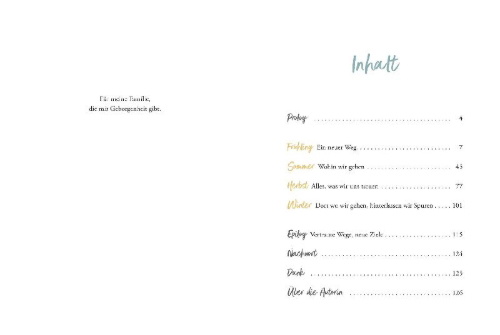 Für meine Familie,
die mir Geborgenheit gibt.
Inhalt
Prolog 4
Frühling Ein neuer Weg 7
Sommer Wohin wir gehen 45
Herbst Alles, was wir uns trauen 77
Winter Dort wo wir gehen, hinterlassen wir Spuren 101
Epilog Vertraute Wege, neue Ziele 115
Nachwort 124
Dank 125
Über die Autorin 126